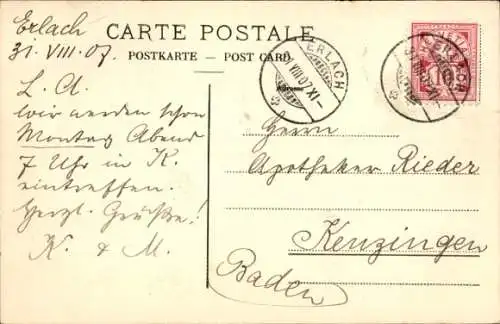 Erlach
31. VIII. 07.
CARTE POSTALE
POSTKARTE — POST CARD
L. A.
Wir werden schon
Montag Abend
7 Uhr in K.
eintreffen.
Herzl. Grüße!
K. & M.
ERLACH
VIII 07 XI
HELVETIA
10
Herrn
Apotheker Rieder
Kenzingen
Baden